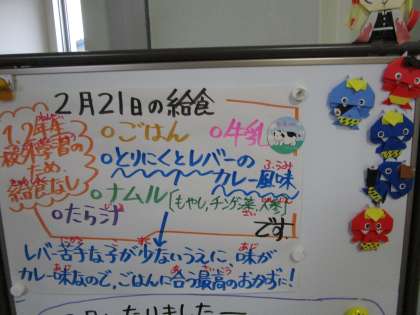 2月21日の給食
1、2年生
校外学習の
ため
給食なし
○ごはん ○牛乳
○とりにくとレバーの
カレー風味
ふうみ
○ナムル [もやし,チンゲン菜,大根]
○たら汁
じる
です.
レバー苦手な子が少ないうえに、味が
カレー味なので、ごはんに合う最高のおかずに!